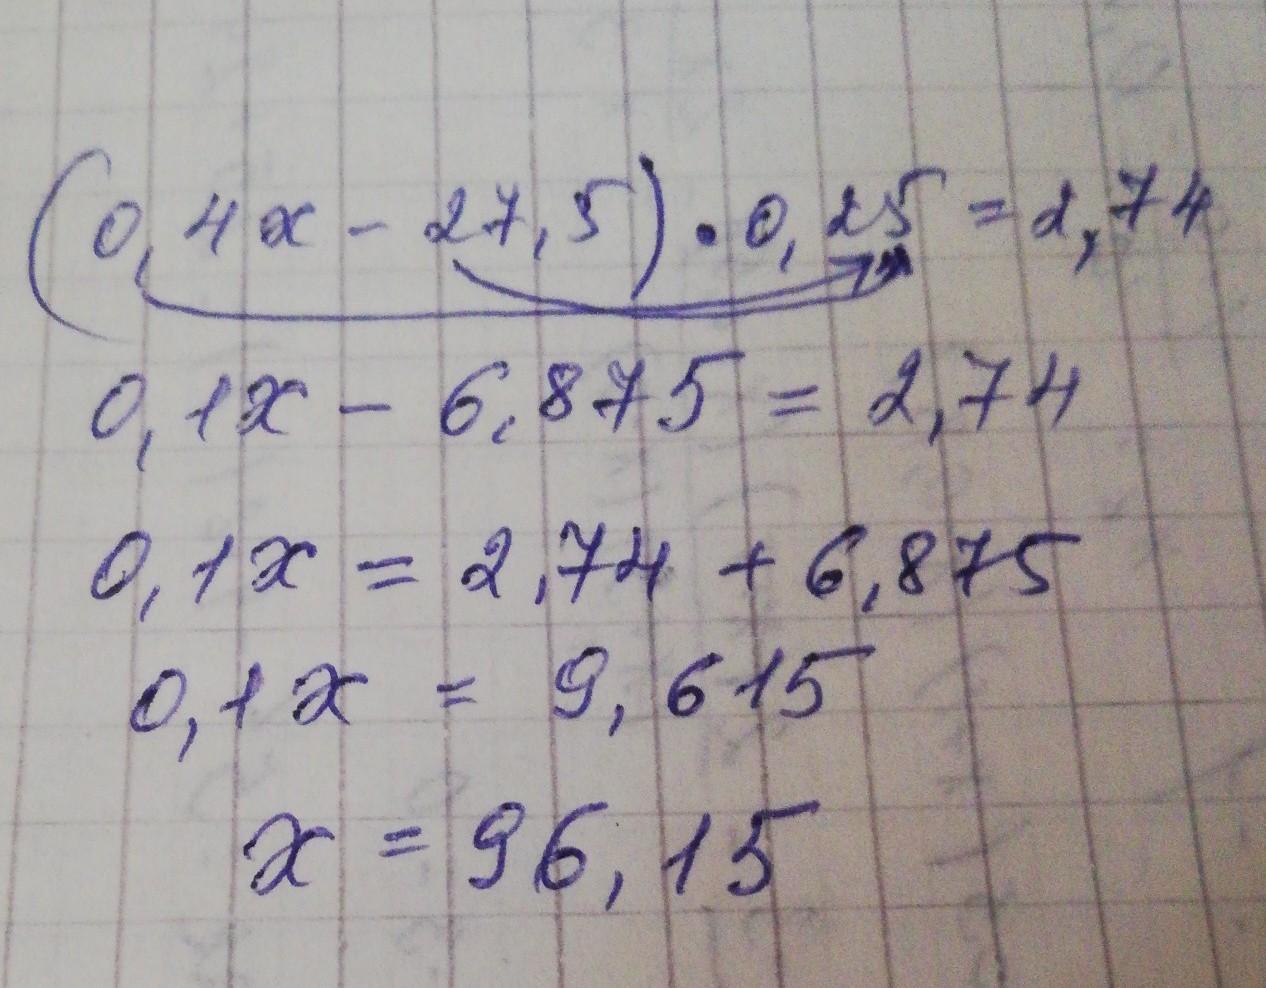 (0,4x - 27,5) · 0,25 = 2,74
0,1x - 6,875 = 2,74
0,1x = 2,74 + 6,875
0,1x = 9,615
x = 96,15